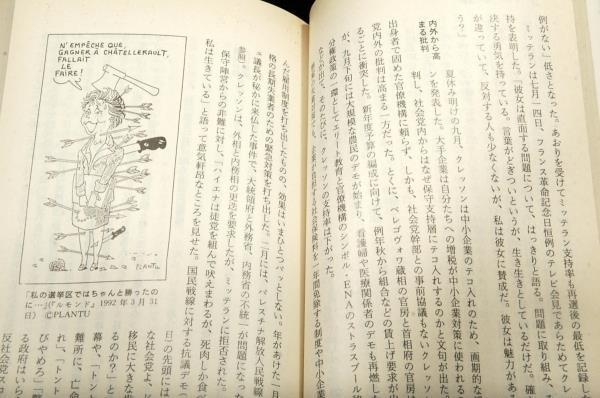 例がない」低さとなった。あおりを受けてミッテラン支持率も再選後の最低を記録した
ミッテランは七月一四日、フランス革命記念日恒例のテレビ会見であらためてクレ
持を表明した。「彼女は直面する問題について、はっきりと語る。問題に取り組み、
決する勇気を持っている。言葉がどぎついというが、生き生きとしているだけだ。確
が違っていて、反対する人も少なくないが、私は彼女に賛成だ。彼女は魅力がある
う？」
内外から高
まる批判
夏休み明けの九月、クレッソンは中小企業のテコ入れのため、画期的な
ンを発表した。大手企業は自分たちへの増税が中小企業対策に使われる
判し、社会党内からはなぜ保守支持層にテコ入れするのかと文句が出た。
出身者で固めた官僚機構に頼らず、しかも、社会党幹部との事前協議もないクレッソン
党内外の批判は高まる一方だった。とくに、ベレゴヴォワ蔵相の官房と首相府の官房は
るごとに衝突した。新年度予算の編成に向けて、例年秋から組合などの賃上げ要求が出
が、九月下旬には大規模な農民のデモが始まり、看護婦や医療関係者のデモも再燃した
分権政策の一環としてエリート教育と官僚機構のシンボル・ENAのストラスブール移
などが出て、そのたびに、クレッソンの支持率は下がった。
企業が負担する社会保険料を一年間免除する制度や中小企業
んだ雇用制度を打ち出したものの、効果はいまひとつパッとしない。年があけた一月
格の長期失業者のための緊急対策を打ち出した。二月には、パレスチナ解放人民戦線
議長が秘かに来仏した事件で、大統領府と外務省、内務省の不統一が問題になった
参照）。クレッソンは、外相と内務相の更迭を要求したが、ミッテランに拒否された。
保守陣営からの非難に対し、「ハイエナは徒党を組んで吠えまわるが、死肉しか食べ
私は生きている」と語って意気軒昂なところを見せた。国民戦線に対する抗議デモ（
N'EMPÊCHE QUE,
GAGNER À CHÂTELLERAULT,
FALLAIT
LE
FAIRE !
PLANTU
「私の選挙区ではちゃんと勝ったの
に…」（『ルモンド』1992年3月31
日） ©PLANTU
日）の先頭には
な社会党よ、ど
移民に大きな
るのか？」と
幕や、「トント
難所に、亡命
れ」、「トント
びやめろ」「
る政府はいら
反社会党スロ